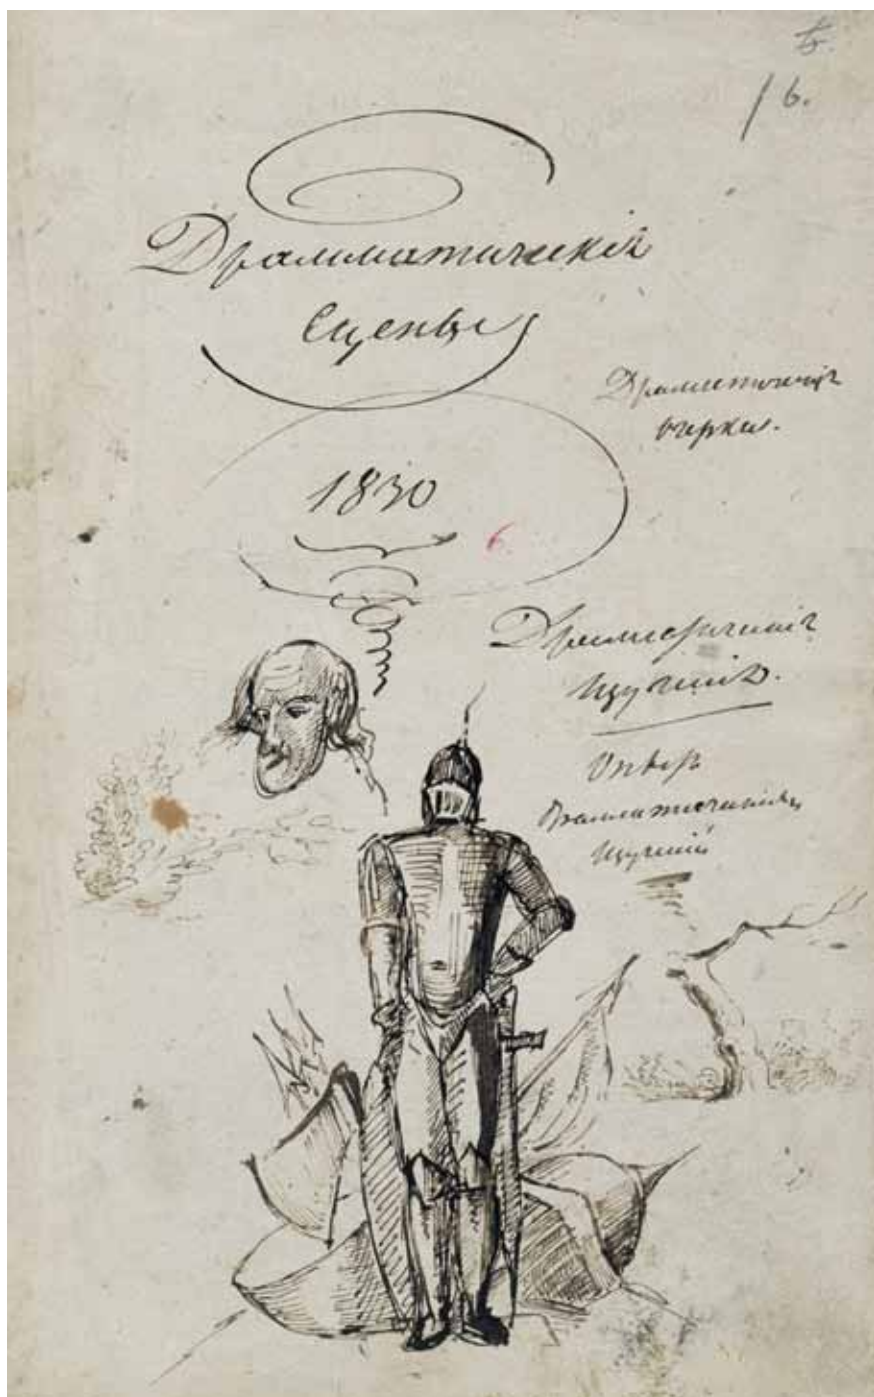 6.
Драмматическiя
Сцены
Драматическiе
очерки.
1830
6.
Драматическiя
изученiя.
Опытъ
драмматическихъ
изученiй